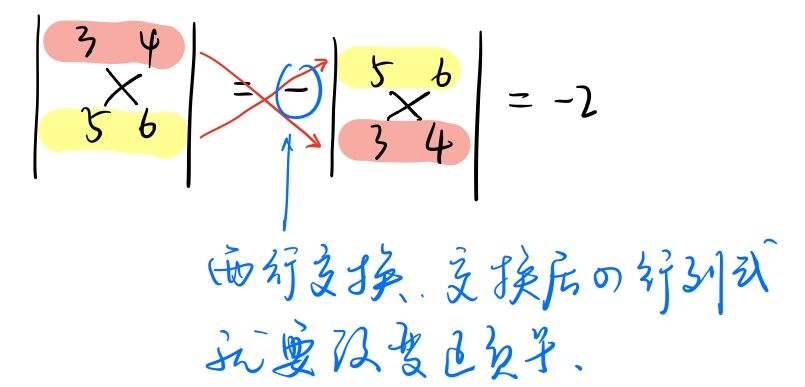 | 3 4 | = - | 5 6 | = -2
| 5 6 | | 3 4 |
两行交换、交换后的行列式
就要改变正负号、